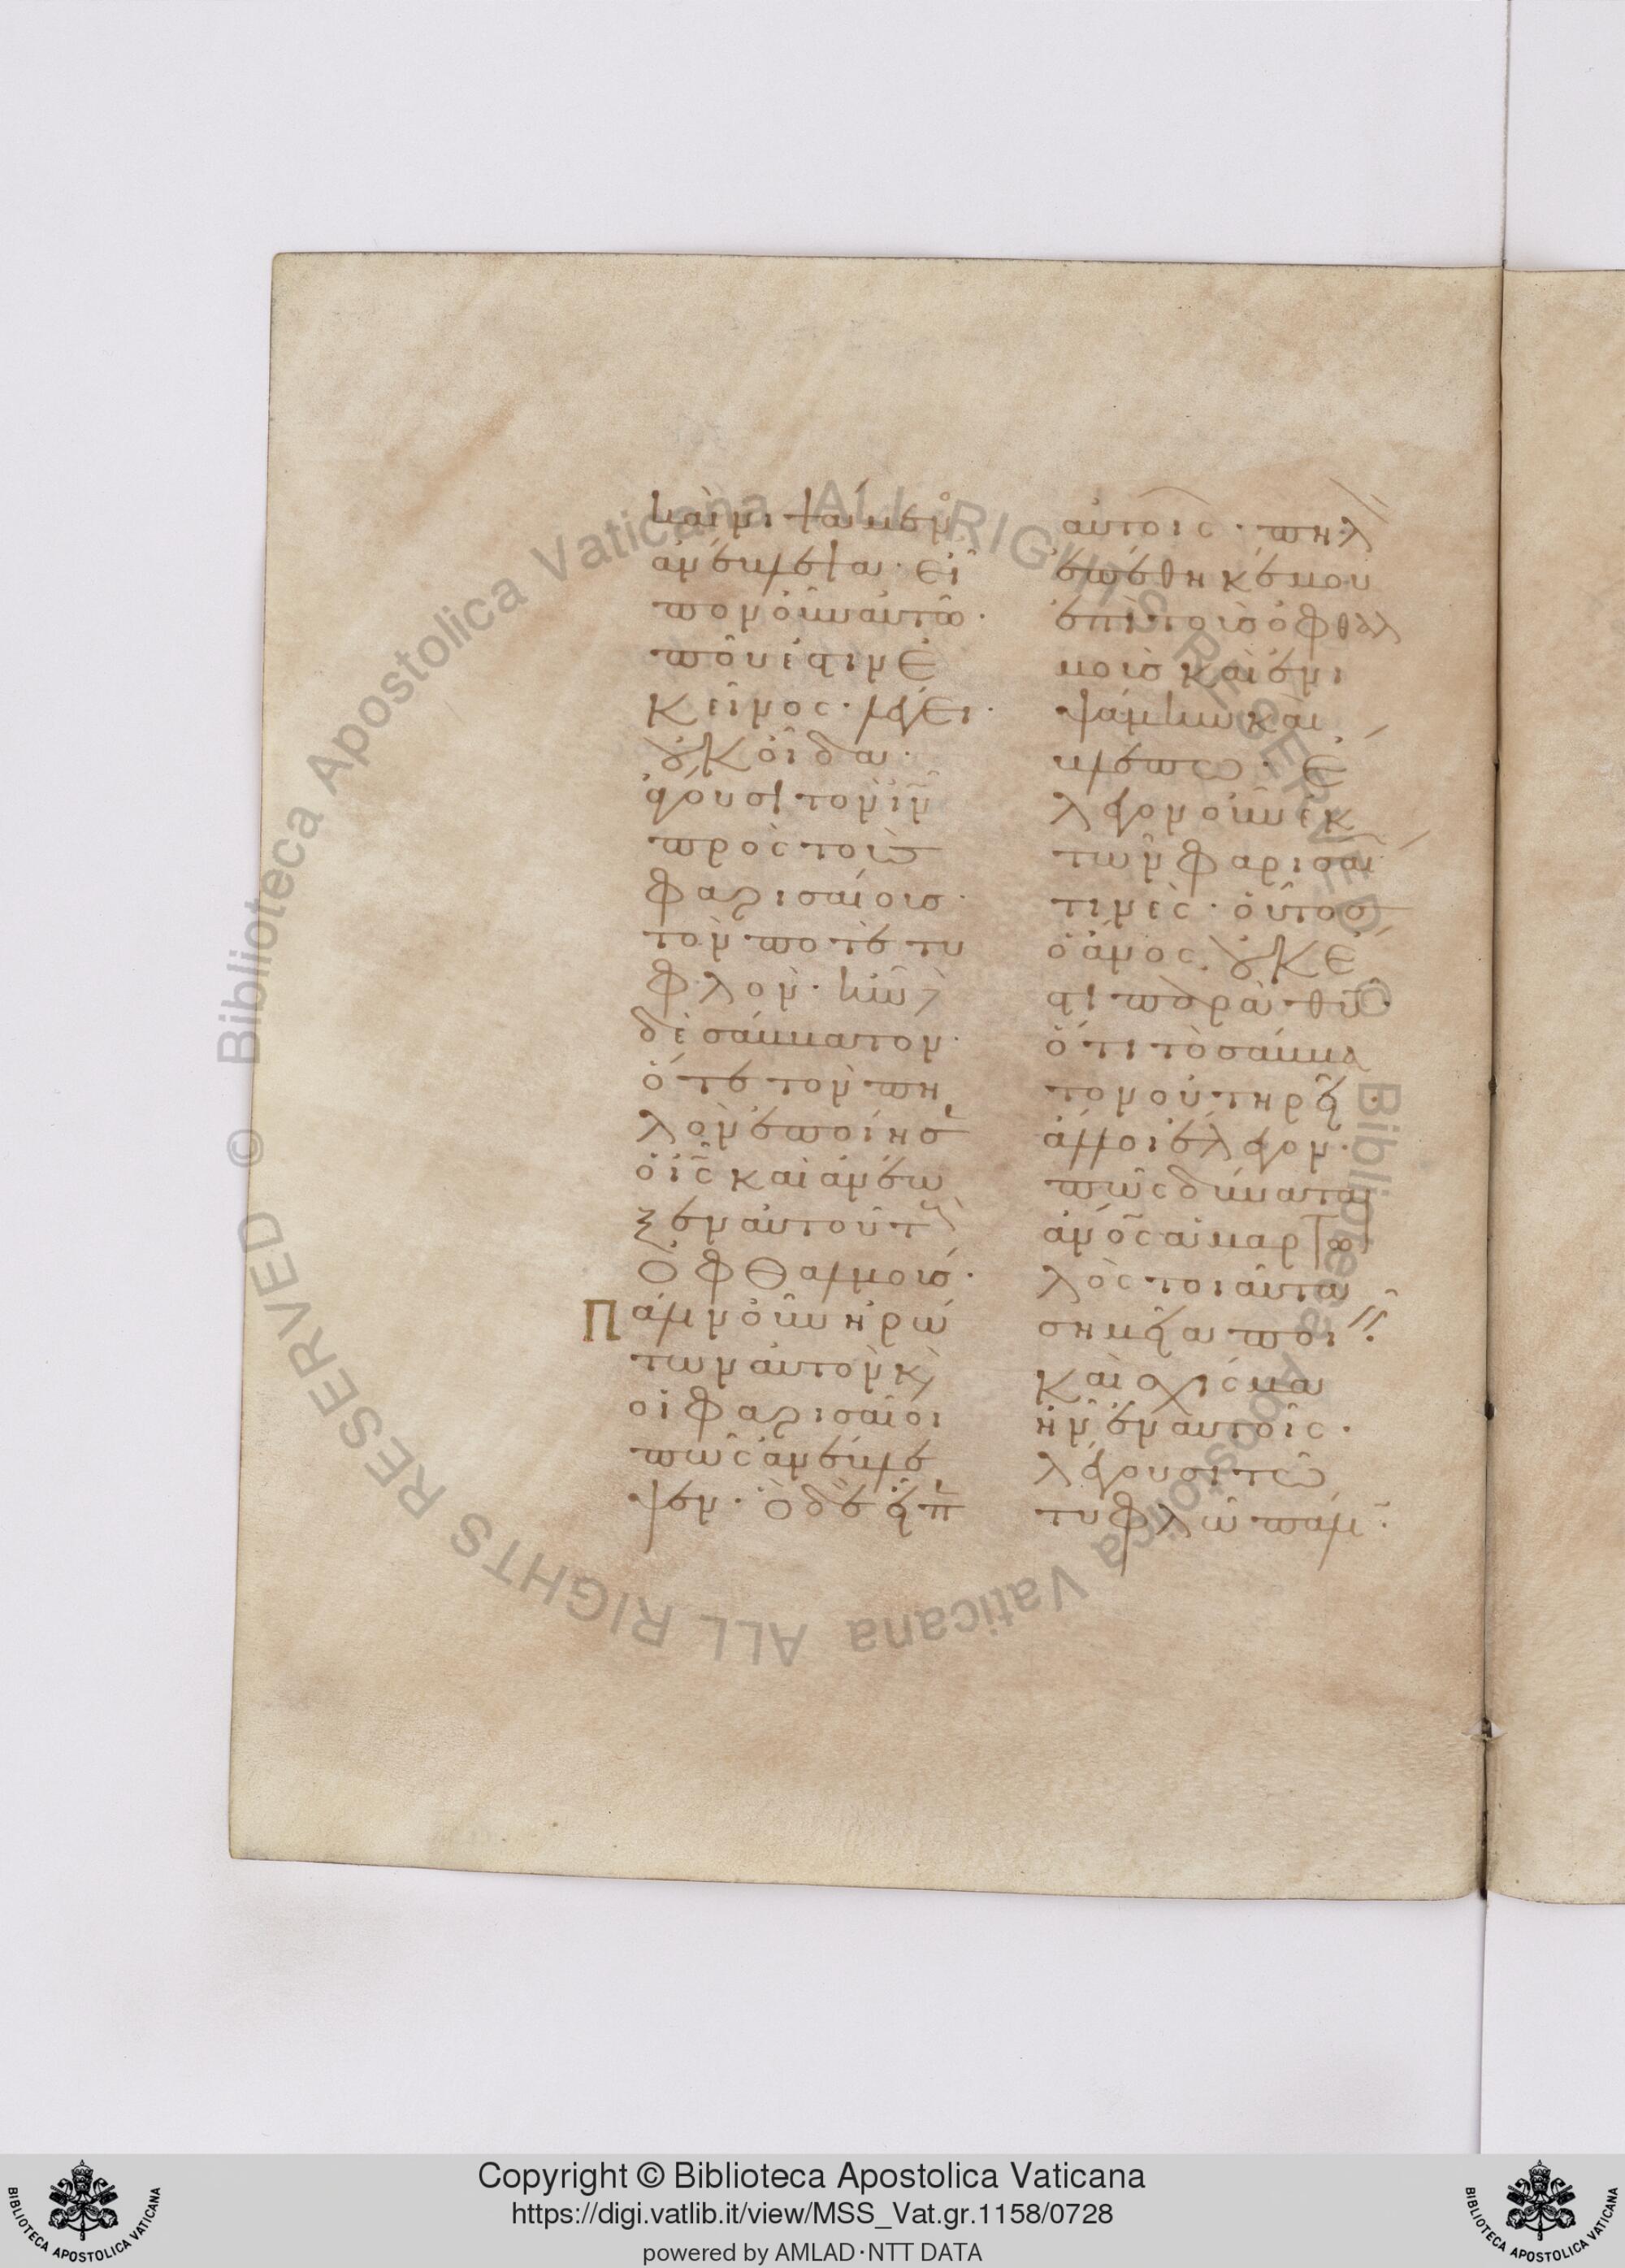 καὶ νιψάμενο
ἀνέβλεψα· εἶ
πον οὖν αὐτῶ·
ποῦ ἐστιν ἐ
κεῖνος· λέγει·
οὐκ οἶδα·
ἄγουσι τὸν ιν
πρὸς τοὺς
φαρισαίους·
τόν ποτε τυ
φλόν· ἦν
δὲ σάββατον·
ὅτε τὸν πη
λὸν ἐποίησ
ὁ ις καὶ ἀνέω
ξεν αὐτοῦ τ
ὀφθαλμούς·
Πάλιν οὖν ἠρώ
των αὐτὸν κ
οἱ φαρισαῖοι
πῶς ἀνέβλε
ψεν· ὁ δὲ εἶπ
αὐτοῖς· πηλ
ἐπέθηκέ μου
ἐπὶ τοὺς ὀφθαλ
μοὺς καὶ ἐνι
ψάμην καὶ
βλέπω· ἔ
λεγον οὖν ἐκ
τῶν φαρισαί
τινές· οὗτος
ὁ ανος οὐκ ἔ
στι παρὰ θυ
ὅτι τὸ σάββα
τον οὐ τηρεῖ·
ἄλλοι ἔλεγον·
πῶς δύναται
ανος ἁμαρτω
λὸς τοιαῦτα
σημεῖα ποι
καὶ σχίσμα
ἦν ἐν αὐτοῖς·
λέγουσι τῶ
τυφλῶ πάλιν·
© Biblioteca Apostolica Vaticana ALL RIGHTS RESERVED © Biblioteca Apostolica Vaticana ALL RIGHTS RESERVED
Copyright © Biblioteca Apostolica Vaticana
https://digi.vatlib.it/view/MSS_Vat.gr.1158/0728
powered by AMLAD·NTT DATA
BIBLIOTECA APOSTOLICA VATICANA
BIBLIOTECA APOSTOLICA VATICANA